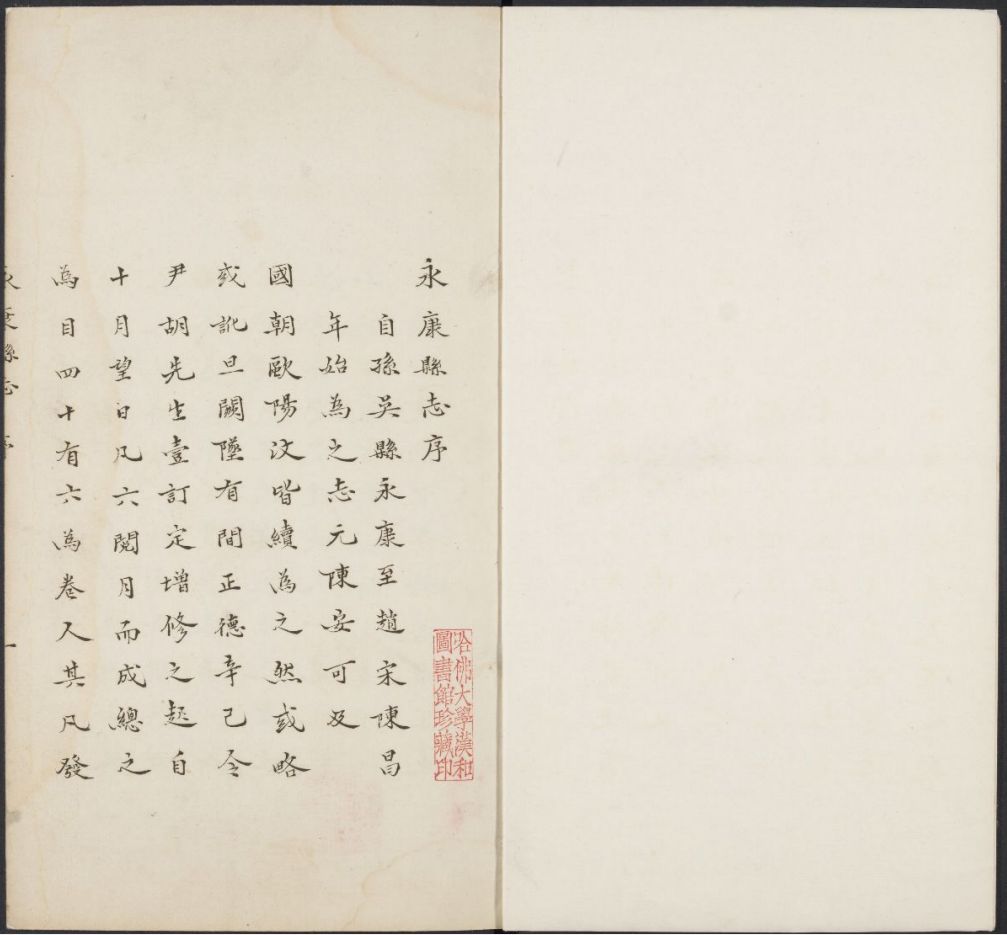 永康縣志序
自孫吳縣永康至趙宋陳昌
年始為之志元陳安可及
國朝歐陽汶皆續為之然或略
或訛旦闕墜有間正德辛己令
尹胡先生壹訂定增修之起自
十月望日凡六閱月而成總之
為目四十有六為卷八其凡發
永康縣志 序 一
哈佛大學漢和
圖書館珍藏印